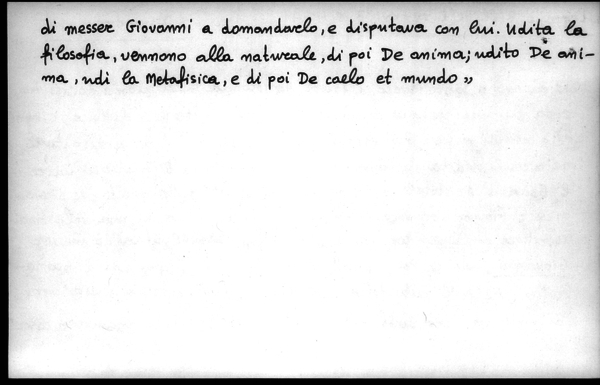 di messer Giovanni a domandarlo, e disputava con lui. Udita la
filosofia, vennono alla naturale, di poi De anima; udito De ani-
ma, udì la Metafisica, e di poi De caelo et mundo »